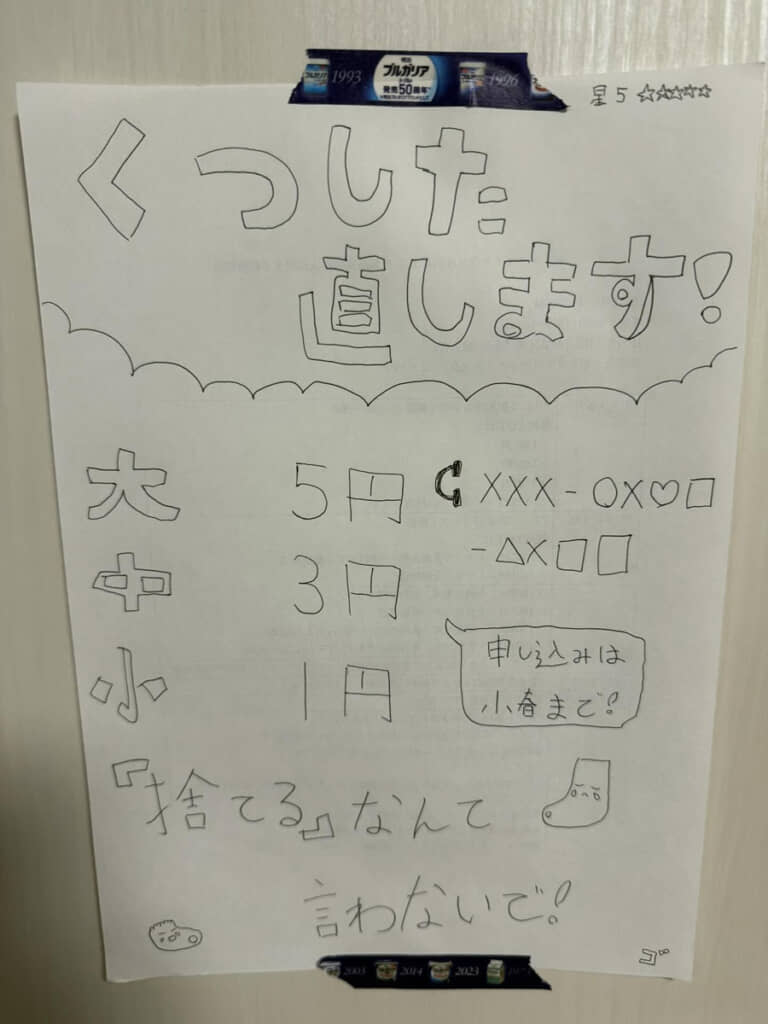 1993
明治
ブルガリア
発売50周年
1996
星5 ☆☆☆☆☆
くつした
直します!
大 5円
中 3円
小 1円
XXX-○X♡□
-△X□□
申し込みは
小春まで!
『捨てる』なんて
言わないで!
2003 2014 2023